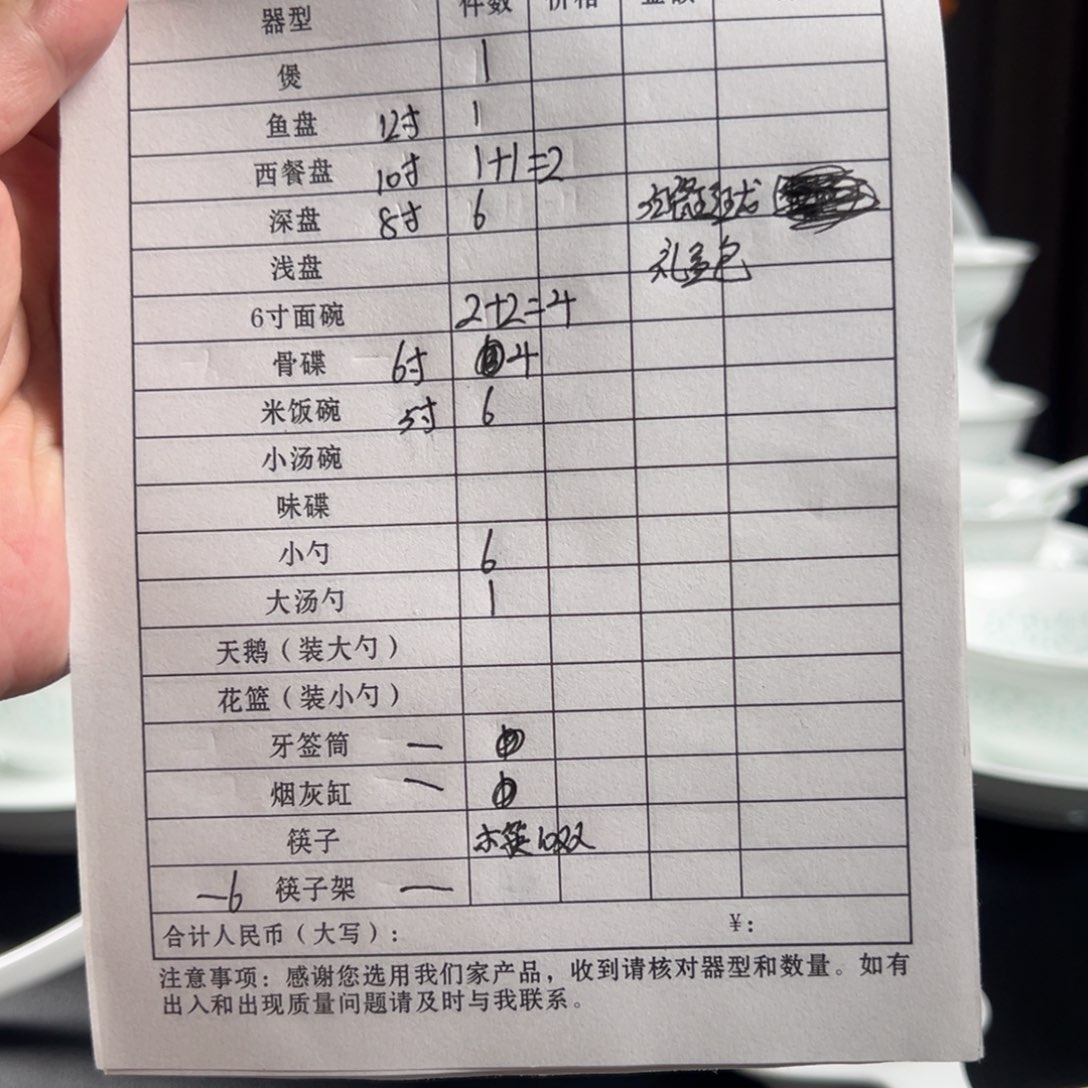 器型 件数 价格 金额
煲 1
鱼盘 12寸 1
西餐盘 10寸 1+1=2
深盘 8寸 6
浅盘 礼盒包
6寸面碗 2+2=4
骨碟 6寸 4
米饭碗 5寸 6
小汤碗
味碟
小勺 6
大汤勺 1
天鹅（装大勺）
花篮（装小勺）
牙签筒 一
烟灰缸 一
筷子 木筷10双
—6 筷子架 —
合计人民币（大写）： ¥：
注意事项：感谢您选用我们家产品，收到请核对器型和数量。如有
出入和出现质量问题请及时与我联系。